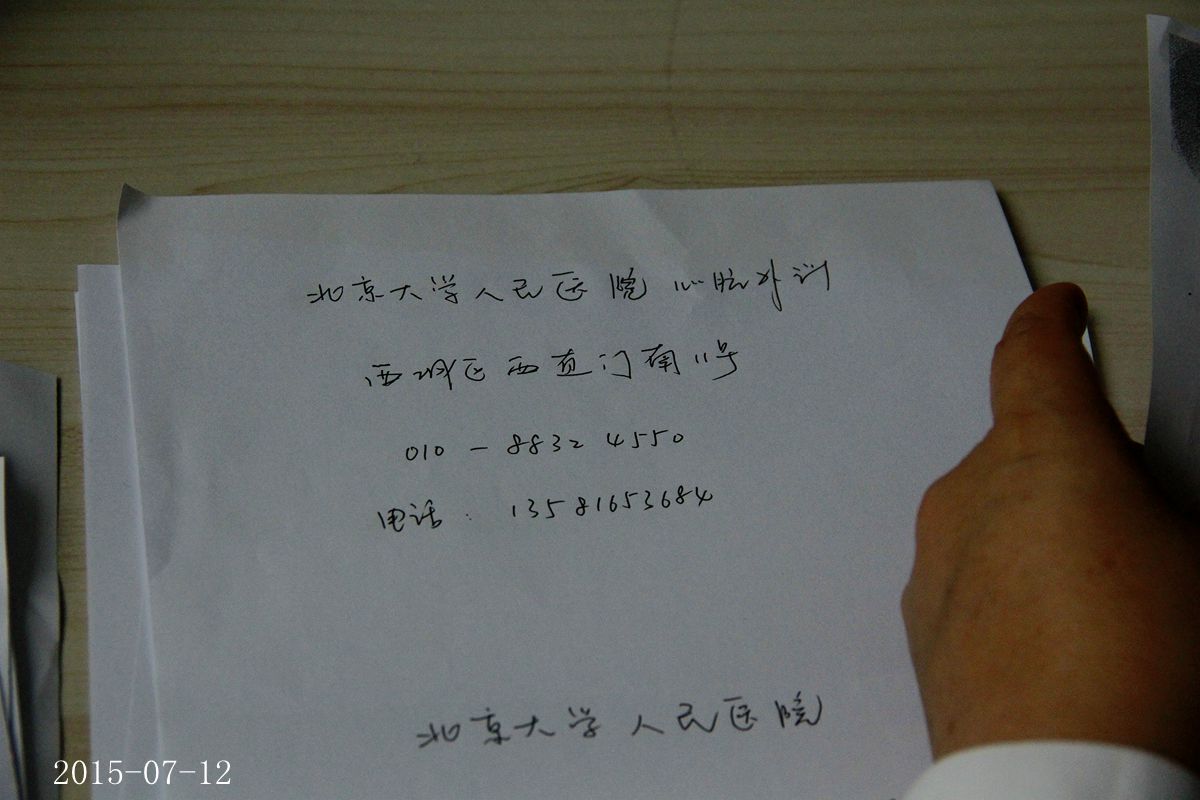 北京大学人民医院 心脏外训
西城区西直门南11号
010-88324550
电话：13581653684
北京大学人民医院
2015-07-12